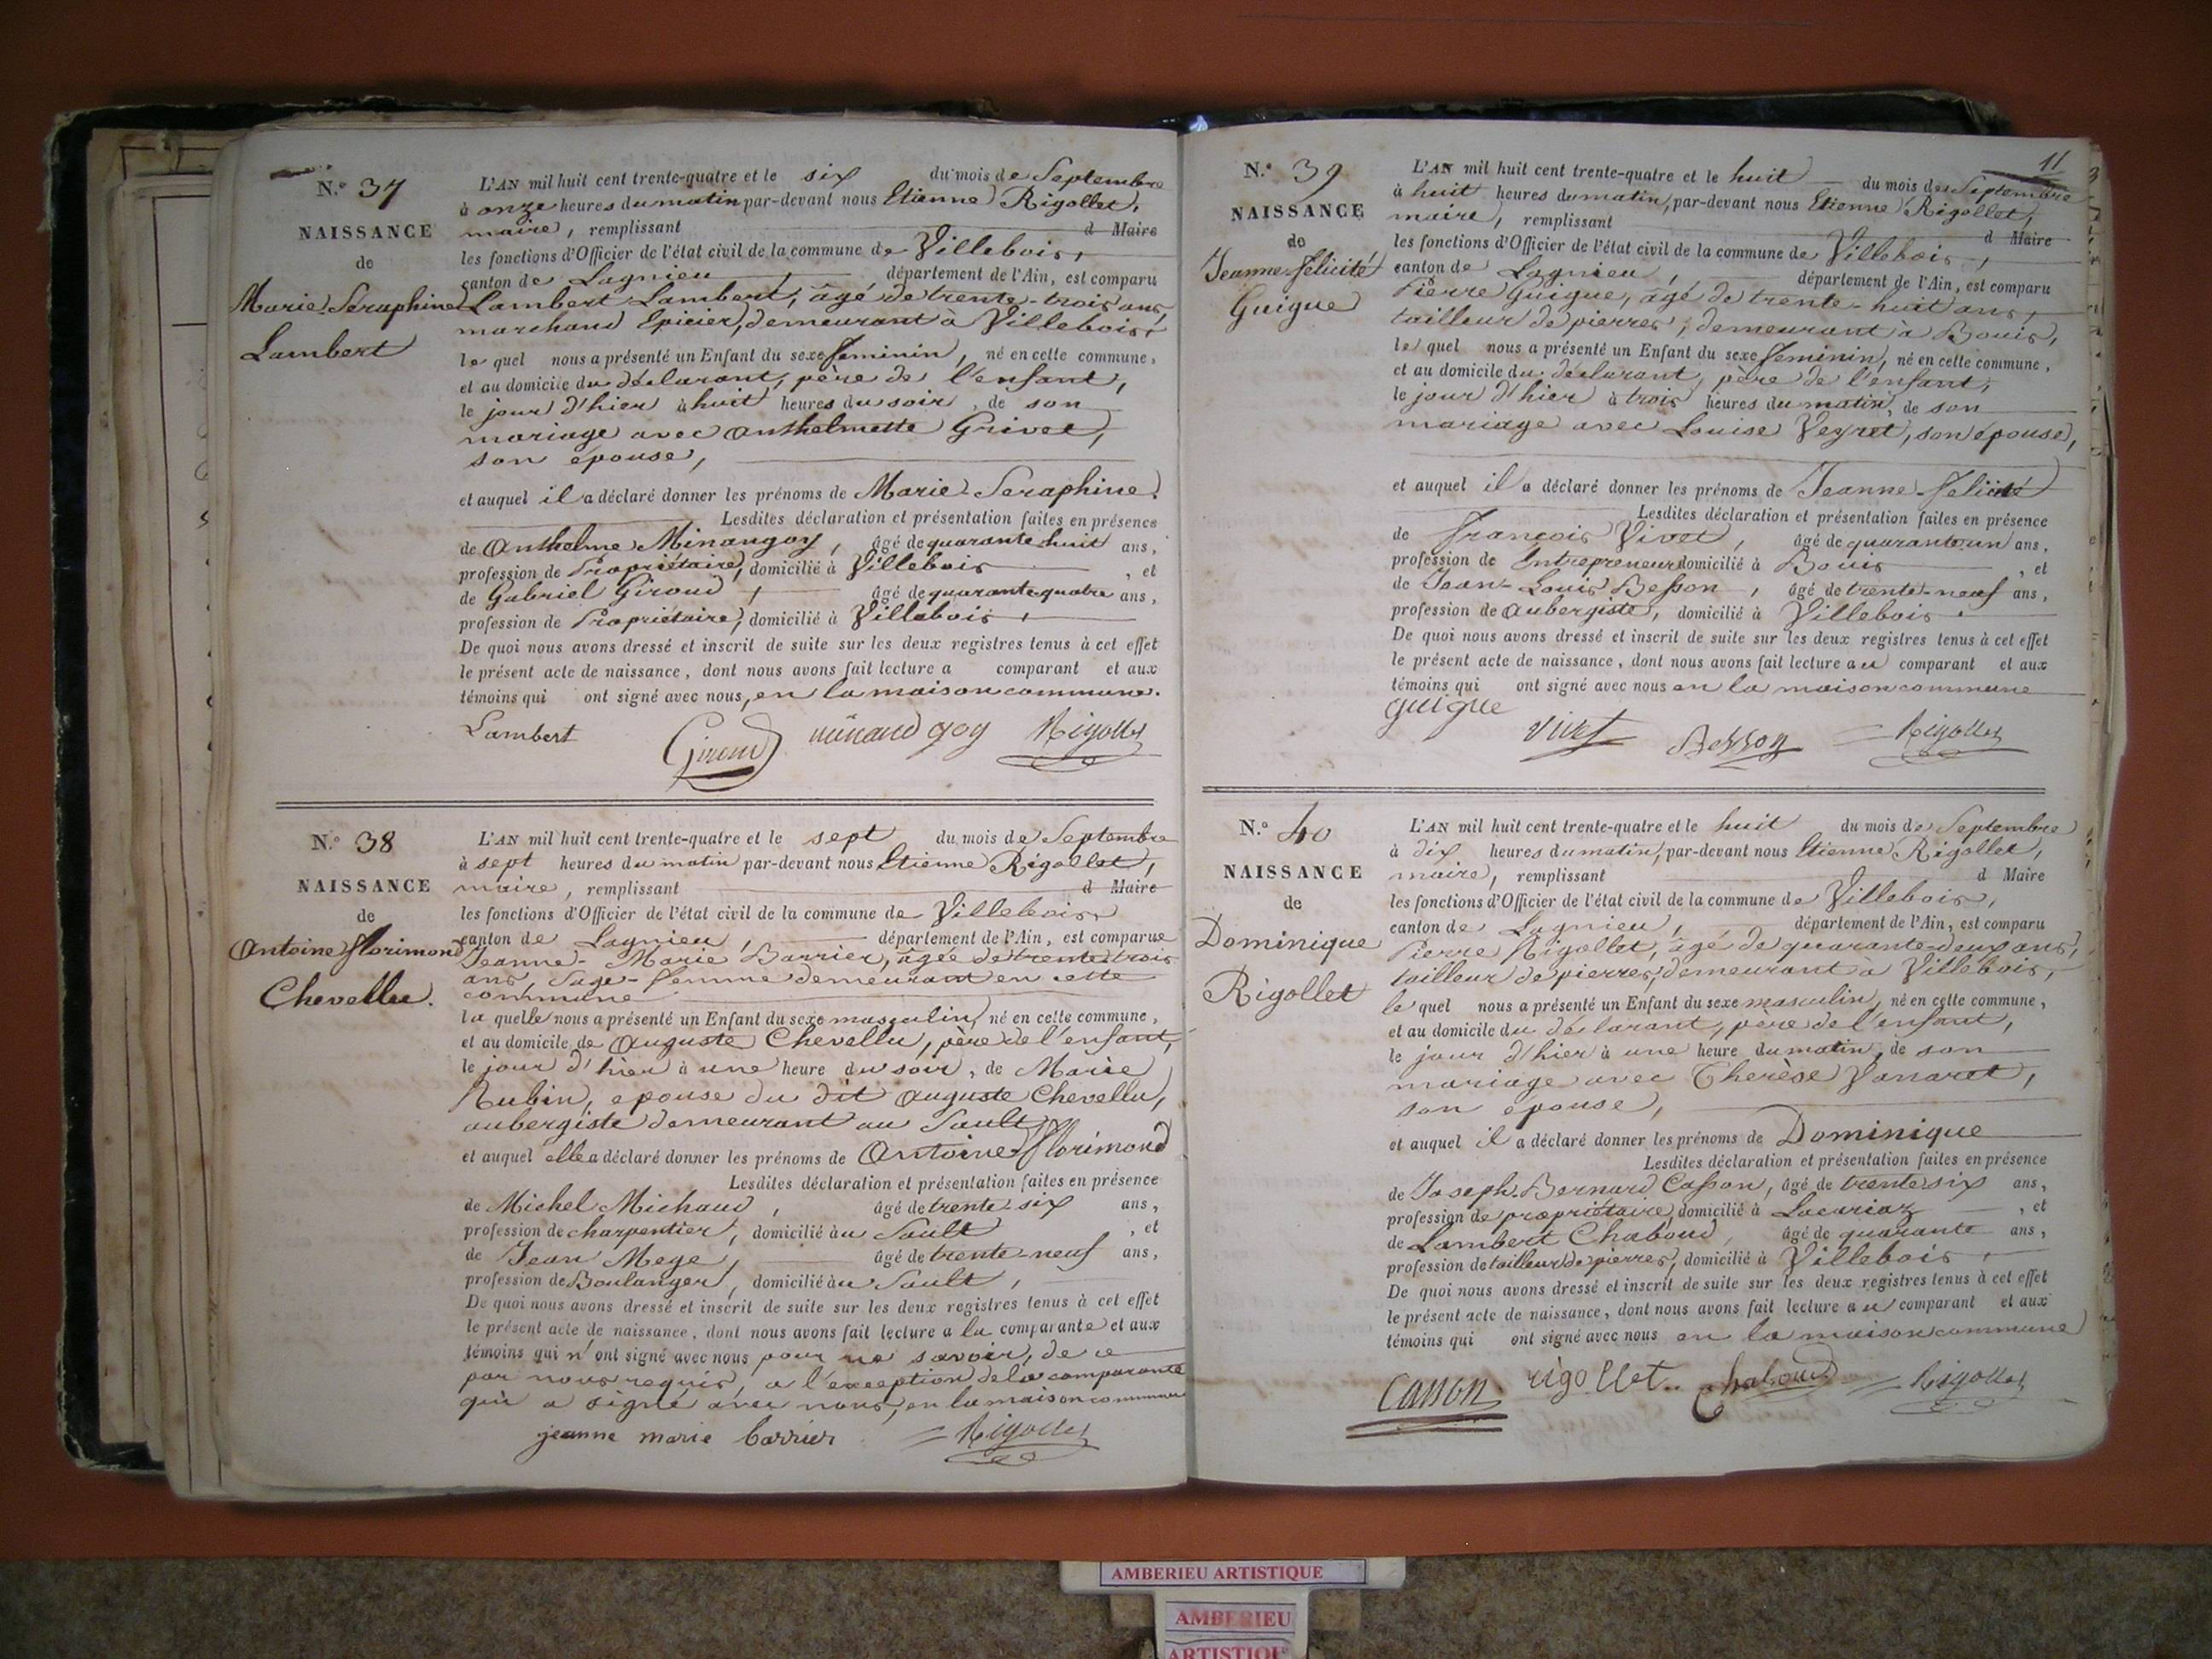 N.º 37
NAISSANCE
de
Marie-Séraphine
Lambert
L'AN mil huit cent trente-quatre et le six du mois de Septembre
à onze heures du matin par-devant nous Etienne Rigollet,
maire, remplissant d Maire
les fonctions d'Officier de l'état civil de la commune de Villebois,
canton de Lagnieu, département de l'Ain, est comparu
Lambert Lambert, âgé de trente-trois ans,
marchand Epicier, demeurant à Villebois,
le quel nous a présenté un Enfant du sexe feminin, né en cette commune,
et au domicile du déclarant, père de l'enfant,
le jour d'hier à huit heures du soir, de son
mariage avec Anthelmette Grivet,
son épouse,
et auquel il a déclaré donner les prénoms de Marie-Seraphine.
Lesdites déclaration et présentation faites en présence
de Anthelme Minangoy, âgé de quarante huit ans,
profession de Propriétaire, domicilié à Villebois, et
de Gabriel Giroud, âgé de quarante quatre ans,
profession de Propriétaire, domicilié à Villebois,
De quoi nous avons dressé et inscrit de suite sur les deux registres tenus à cet effet
le présent acte de naissance, dont nous avons fait lecture a comparant et aux
témoins qui ont signé avec nous, en la maison commune.
Lambert Giroud minand goy Rigollet
N.º 38
NAISSANCE
de
Antoine Florimond
Chevellu.
L'AN mil huit cent trente-quatre et le sept du mois de Septembre
à sept heures du matin par-devant nous Etienne Rigollet,
maire, remplissant d Maire
les fonctions d'Officier de l'état civil de la commune de Villebois
canton de Lagnieu, département de l'Ain, est comparue
Jeanne-Marie Barrier, âgée de trente trois
ans, Sage-femme demeurant en cette
commune
la quelle nous a présenté un Enfant du sexe masculin, né en cette commune,
et au domicile de Auguste Chevellu, père de l'enfant,
le jour d'hier à une heure du soir, de Marie
Rubin, epouse du dit Auguste Chevellu,
aubergiste demeurant au Sault
et auquel elle a déclaré donner les prénoms de Antoine-Florimond
Lesdites déclaration et présentation faites en présence
de Michel Michaud, âgé de trente-six ans,
profession de charpentier, domicilié au Sault, et
de Jean Mege, âgé de trente-neuf ans,
profession de Boulanger, domicilié au Sault,
De quoi nous avons dressé et inscrit de suite sur les deux registres tenus à cet effet
le présent acte de naissance, dont nous avons fait lecture a la comparante et aux
témoins qui n'ont signé avec nous pour ne savoir, de ce
par nous requis, a l'exception de la comparante
qui a signé avec nous, en la maison commune
jeanne marie barrier Rigollet
11
N.º 39
NAISSANCE
de
Jeanne-félicité
Guigue
L'AN mil huit cent trente-quatre et le huit du mois de Septembre
à huit heures du matin, par-devant nous Etienne Rigollet,
maire, remplissant d Maire
les fonctions d'Officier de l'état civil de la commune de Villebois,
canton de Lagnieu, département de l'Ain, est comparu
Pierre Guigue, âgé de trente-huit ans,
tailleur de pierres, demeurant à Bouis,
le quel nous a présenté un Enfant du sexe feminin, né en cette commune,
et au domicile du déclarant, père de l'enfant,
le jour d'hier à trois heures du matin, de son
mariage avec Louise Veyret, son épouse,
et auquel il a déclaré donner les prénoms de Jeanne-félicité
Lesdites déclaration et présentation faites en présence
de François Vivet, âgé de quarante un ans,
profession de Entrepreneur domicilié à Bouis, et
de Jean-Louis Besson, âgé de trente-neuf ans,
profession de aubergiste, domicilié à Villebois.
De quoi nous avons dressé et inscrit de suite sur les deux registres tenus à cet effet
le présent acte de naissance, dont nous avons fait lecture au comparant et aux
témoins qui ont signé avec nous en la maison commune
guigue Vivet Besson Rigollet
N.º 40
NAISSANCE
de
Dominique
Rigollet
L'AN mil huit cent trente-quatre et le huit du mois de Septembre
à dix heures du matin, par-devant nous Etienne Rigollet,
maire, remplissant d Maire
les fonctions d'Officier de l'état civil de la commune de Villebois,
canton de Lagnieu, département de l'Ain, est comparu
Pierre Rigollet, âgé de quarante-deux ans,
tailleur de pierres, demeurant à Villebois,
le quel nous a présenté un Enfant du sexe masculin, né en cette commune,
et au domicile du déclarant, père de l'enfant,
le jour d'hier à une heure du matin, de son
mariage avec Therèse Vanaret,
son épouse,
et auquel il a déclaré donner les prénoms de Dominique
Lesdites déclaration et présentation faites en présence
de Joseph-Bernard Casson, âgé de trente six ans,
profession de propriétaire, domicilié à Lacuriaz, et
de Lambert Chaboud, âgé de quarante ans,
profession de tailleur de pierres, domicilié à Villebois,
De quoi nous avons dressé et inscrit de suite sur les deux registres tenus à cet effet
le présent acte de naissance, dont nous avons fait lecture au comparant et aux
témoins qui ont signé avec nous en la maison commune
Casson rigollet Chaboud Rigollet
AMBERIEU ARTISTIQUE
AMBERIEU
ARTISTIQUE